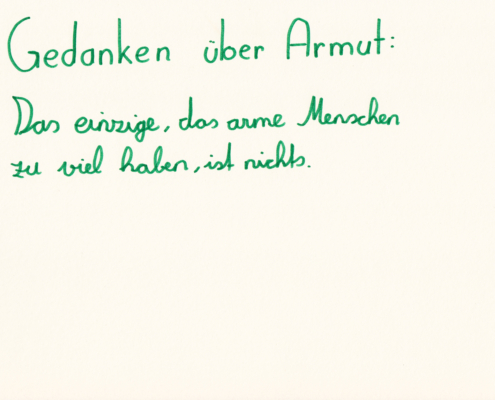 Gedanken über Armut:
Das einzige, das arme Menschen
zu viel haben, ist nichts.